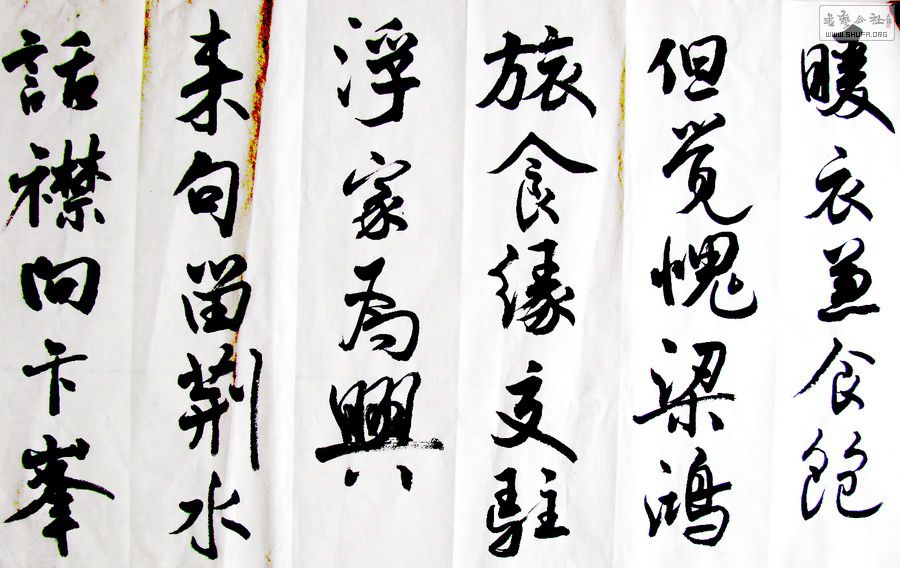 暖衣兼食飽
但覺愧梁鴻
旅食緣交駐
浮家為興
来句留荊水
話襟向卞峯
書藝公社
WWW.SHUFA.ORG